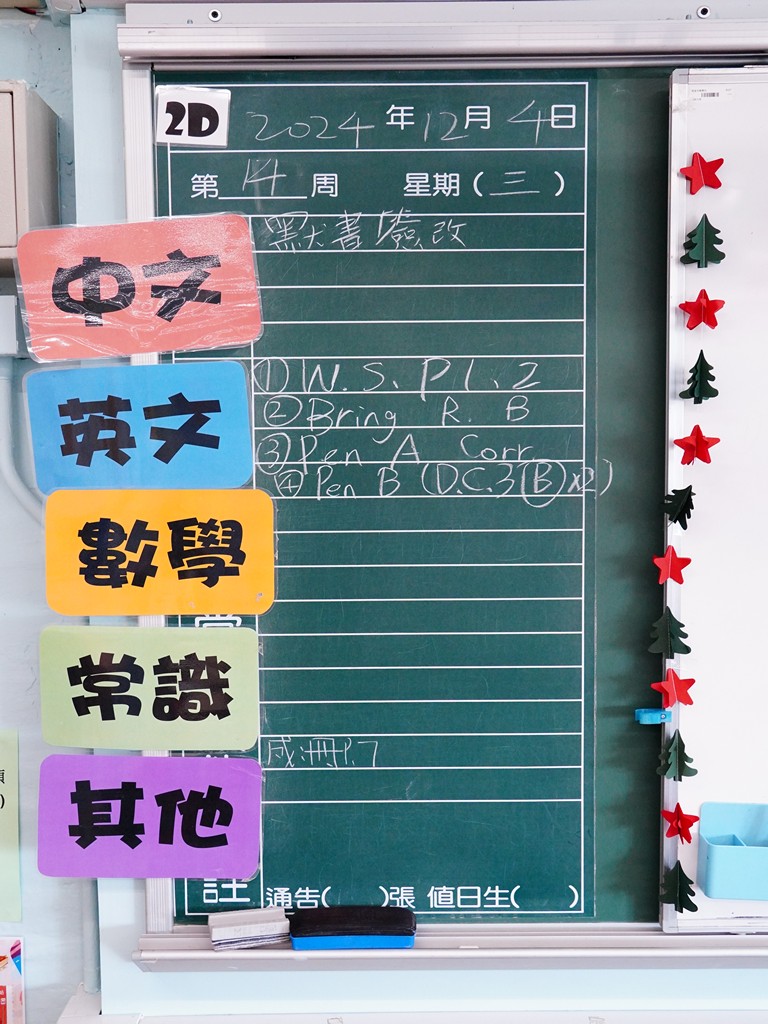 2D 2024年12月4日
第14周 星期(三)
中文 默書簽改
英文 ①W.S. P1、2
②Bring R. B
③Pen A Corr.
④Pen B (D.C.3Ⓑx2)
數學
常識
其他 成冊P.7
註 通告( )張 值日生( )